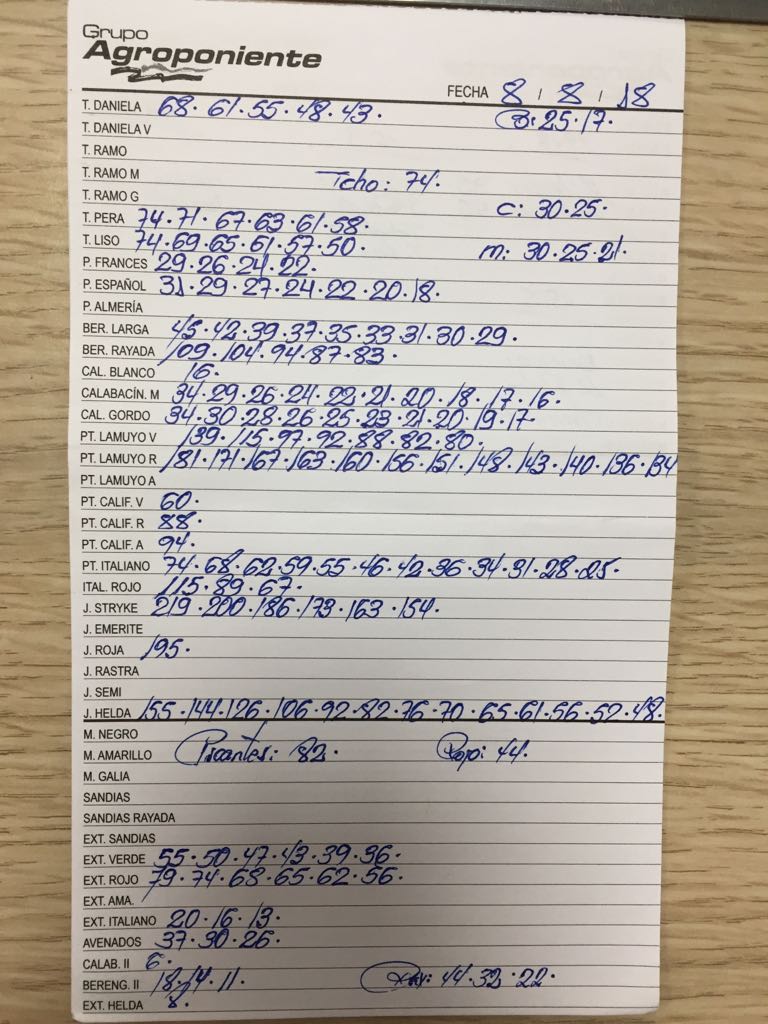 Grupo
Agroponiente
FECHA 8 / 8 / 18
T. DANIELA 68. 61. 55. 48. 43.
T. DANIELA V : 25. 17.
T. RAMO
T. RAMO M Tcho: 74.
T. RAMO G C: 30. 25.
T. PERA 74. 71. 67. 63. 61. 58.
T. LISO 74. 69. 65. 61. 57. 50. M: 30. 25. 21.
P. FRANCES 29. 26. 24. 22.
P. ESPAÑOL 31. 29. 27. 24. 22. 20. 18.
P. ALMERÍA
BER. LARGA 45. 42. 39. 37. 35. 33. 31. 30. 29.
BER. RAYADA 109. 104. 94. 87. 83.
CAL. BLANCO 16.
CALABACÍN. M 34. 29. 26. 24. 22. 21. 20. 18. 17. 16.
CAL. GORDO 34. 30. 28. 26. 25. 23. 21. 20. 19. 17.
PT. LAMUYO V 139. 115. 97. 92. 88. 82. 80.
PT. LAMUYO R 181. 171. 167. 163. 160. 156. 151. 148. 143. 140. 136. 134
PT. LAMUYO A
PT. CALIF. V 60.
PT. CALIF. R 88.
PT. CALIF. A 94.
PT. ITALIANO 74. 68. 62. 59. 55. 46. 42. 36. 34. 31. 28. 25.
ITAL. ROJO 115. 89. 67.
J. STRYKE 219. 200. 186. 173. 163. 154.
J. EMERITE
J. ROJA 195.
J. RASTRA
J. SEMI
J. HELDA 155. 144. 126. 106. 92. 82. 76. 70. 65. 61. 56. 52. 48.
M. NEGRO
M. AMARILLO Picantes: 82. Rojo: 44.
M. GALIA
SANDIAS
SANDIAS RAYADA
EXT. SANDIAS
EXT. VERDE 55. 50. 47. 43. 39. 36.
EXT. ROJO 79. 74. 68. 65. 62. 56.
EXT. AMA.
EXT. ITALIANO 20. 16. 13.
AVENADOS 37. 30. 26.
CALAB. II 6.
BERENG. II 18. 14. 11. : 44. 32. 22.
EXT. HELDA 8.